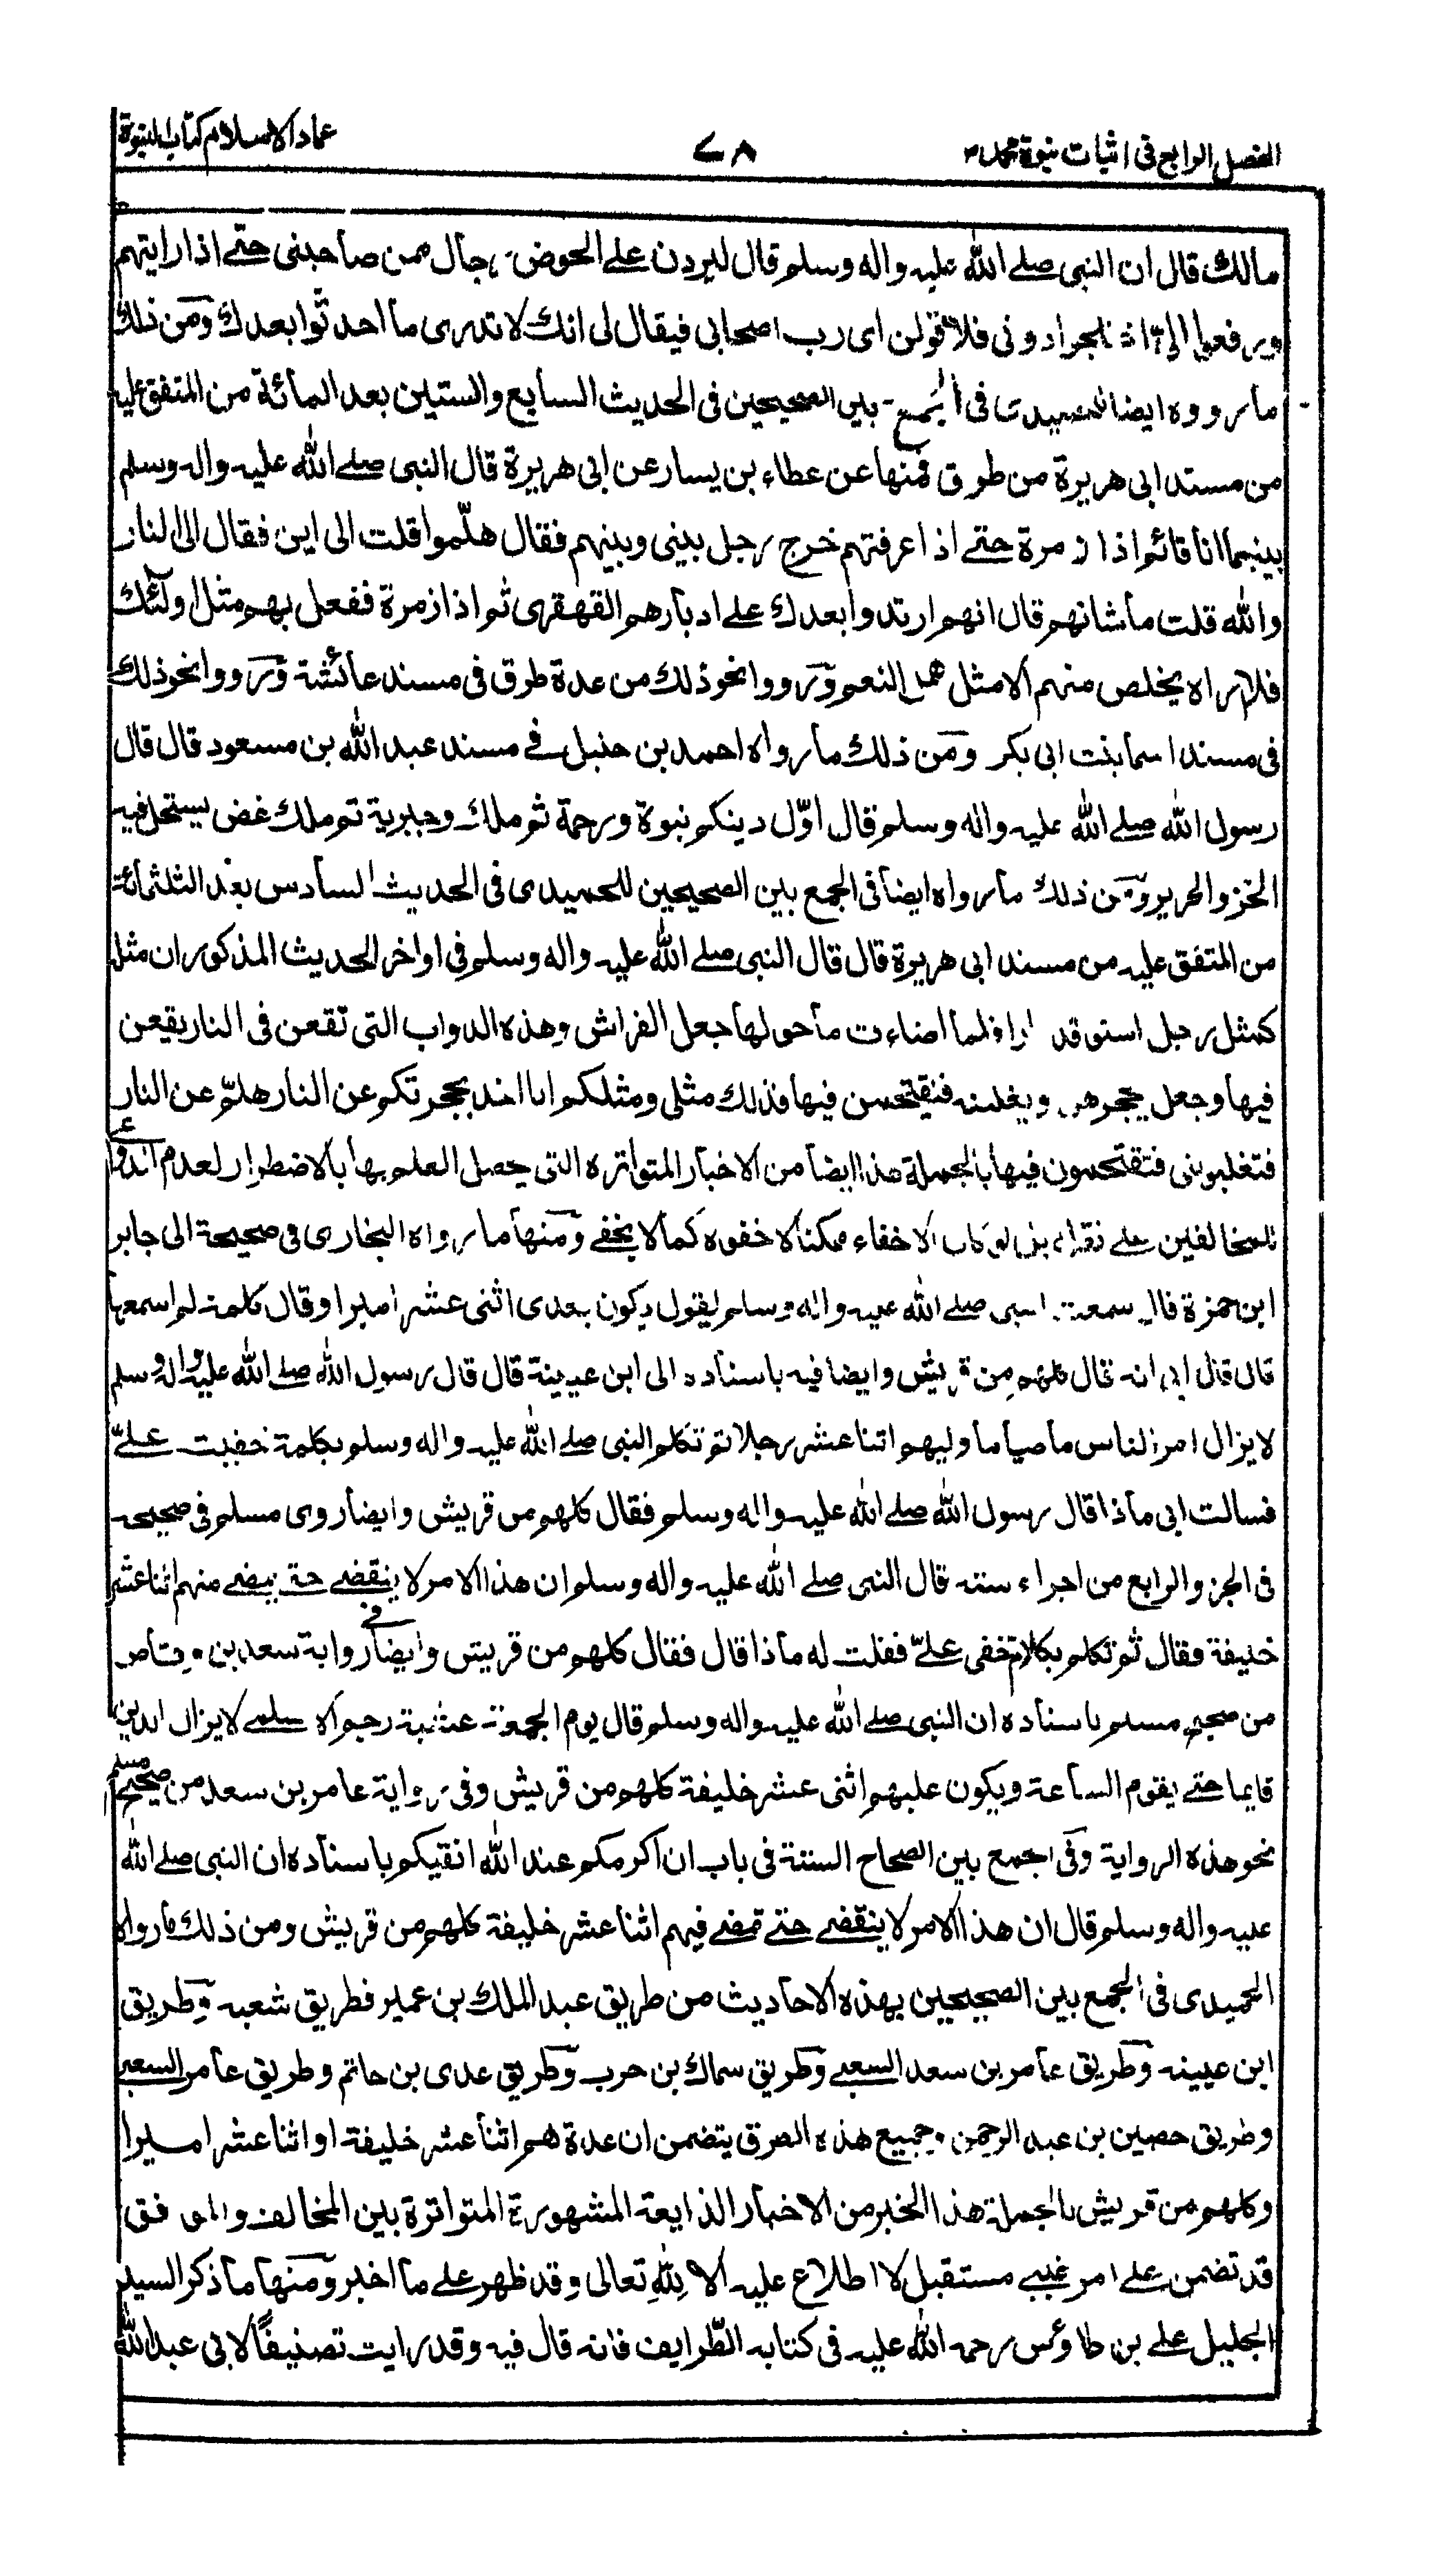 الفصل الرابع فی اثبات نبوة محمد ص ۷۸ عماد الاسلام کتاب النبوة
مالك قال ان النبی صلے اللّٰه علیه واله وسلم قال لیردن علے الحوض رجال ممن صاحبنی حتّے اذا رایتهم
ورفعوا الیّ اختلجوا دونی فلاقولن ای رب اصحابی فیقال لی انك لا تدری ما احدثوا بعدك ومن ذلك
ما رووه ایضا للحمیدی فی الجمع بین الصحیحین فی الحدیث السابع والستین بعد المائة من المتفق علیه
من مسند ابی هریرة من طرق فمنها عن عطاء بن یسار عن ابی هریرة قال النبی صلے اللّٰه علیه واله وسلم
بینما انا قائم اذا زمرة حتے اذا عرفتهم خرج رجل بینی وبینهم فقال هلّموا قلت الی این فقال الی النار
واللّٰه قلت ما شانهم قال انهم ارتدوا بعدك علے ادبارهم القهقری ثم اذا زمرة ففعل بهم مثل اولٓئك
فلا اراه یخلص منهم الا مثل همل النعم ورووا نحو ذلك من عدة طرق فی مسند عائشة ورووا نحو ذلك
فی مسند اسما بنت ابی بکر ومن ذلك ما رواه احمد بن حنبل فے مسند عبد اللّٰه بن مسعود قال قال
رسول اللّٰه صلے اللّٰه علیه واله وسلم قال اوّل دینکم نبوة ورحمة ثم ملك وجبریة ثم ملك غض یستحل فیه
الخز والحریر ومن ذلك ما رواه ایضا فی الجمع بین الصحیحین للحمیدی فی الحدیث السادس بعد الثلثمائة
من المتفق علیه من مسند ابی هریرة قال قال النبی صلے اللّٰه علیه واله وسلم فی اواخر الحدیث المذکور ان مثلی
کمثل رجل استوقد نارا فلما اضاءت ما حولها جعل الفراش وهذه الدواب التی تقعن فی النار یقعن
فیها وجعل یحجزهن ویغلبنه فیقتحمن فیها فذلك مثلی ومثلکم انا اخذ بحجزتکم عن النار هلمّ عن النار
فتغلبوننی فتقتحمون فیها بالجملة هذا ایضا من الاخبار المتواتره التی یحصل العلم بها بالاضطرار لعدم
للمخالفین علے الاخفاء ممکنا لاخفوه کما لا یخفے ومنها ما رواه البخاری فی صحیحة الی جابر
ابن حمزة قال سمعت النبی صلے اللّٰه علیه واله وسلم یقول یکون بعدی اثنی عشر امیرا وقال کلمة لم اسمعها
قال قال ابی انه قال کلهم من قریش وایضا فیه باسناده الی ابن عیینة قال قال رسول اللّٰه صلے اللّٰه علیه واله وسلم
لا یزال امر الناس ماضیا ما ولیهم اثنا عشر رجلا ثم تکلم النبی صلے اللّٰه علیه واله وسلم بکلمة خفیت علیّ
فسالت ابی ماذا قال رسول اللّٰه صلے اللّٰه علیه واله وسلم فقال کلهم من قریش وایضا روی مسلم فی صحیحه
فی الجزو الرابع من اجزاء ستة قال النبی صلے اللّٰه علیه واله وسلم ان هذا الامر لا ینقضے حتے یمضے منهم اثنا عشر
خلیفة فقال ثم تکلم بکلام خفی علیّ فقلت له ماذا قال فقال کلهم من قریش وایضا فے روایة سعد بن وقاص
من صحیح مسلم باسناده ان النبی صلے اللّٰه علیه واله وسلم قال یوم الجمعة عشیة رجم الاسلمے لا یزال الدین
قایما حتے یقوم الساعة ویکون علیهم اثنی عشر خلیفة کلهم من قریش وفی روایة عامر بن سعد من صحیح مسلم
نحو هذه الروایة وفی الجمع بین الصحاح الستة فی باب ان اکرمکم عند اللّٰه اتقیکم باسناده ان النبی صلے اللّٰه
علیه واله وسلم قال ان هذا الامر لا ینقضے حتے تمضے فیهم اثنا عشر خلیفة کلهم من قریش ومن ذلك ما رواه
الحمیدی فی الجمع بین الصحیحین بهذه الاحادیث من طریق عبد الملك بن عمیر فطریق شعبه وطریق
ابن عیینه وطریق عامر بن سعد السعبے وطریق سماك بن حرب وطریق عدی بن حاتم وطریق عامر السعبے
وطریق حصین بن عبد الرحمن وجمیع هذه الطرق یتضمن ان عدة هم اثنا عشر خلیفة او اثنا عشر امیرا
وکلهم من قریش بالجملة هذا الخبر من الاخبار الذایعة المشهورة المتواترة بین المخالف والموافق
قد تضمن علے امر غیبے مستقبل لا اطلاع علیه الا للّٰهِ تعالی وقد ظهر علے ما اخبر ومنها ما ذکر السید
الجلیل علے بن طاوٴس رحمه اللّٰه علیه فی کتابه الطّرایف فانه قال فیه وقد رایت تصنیفًا لابی عبد اللّٰه